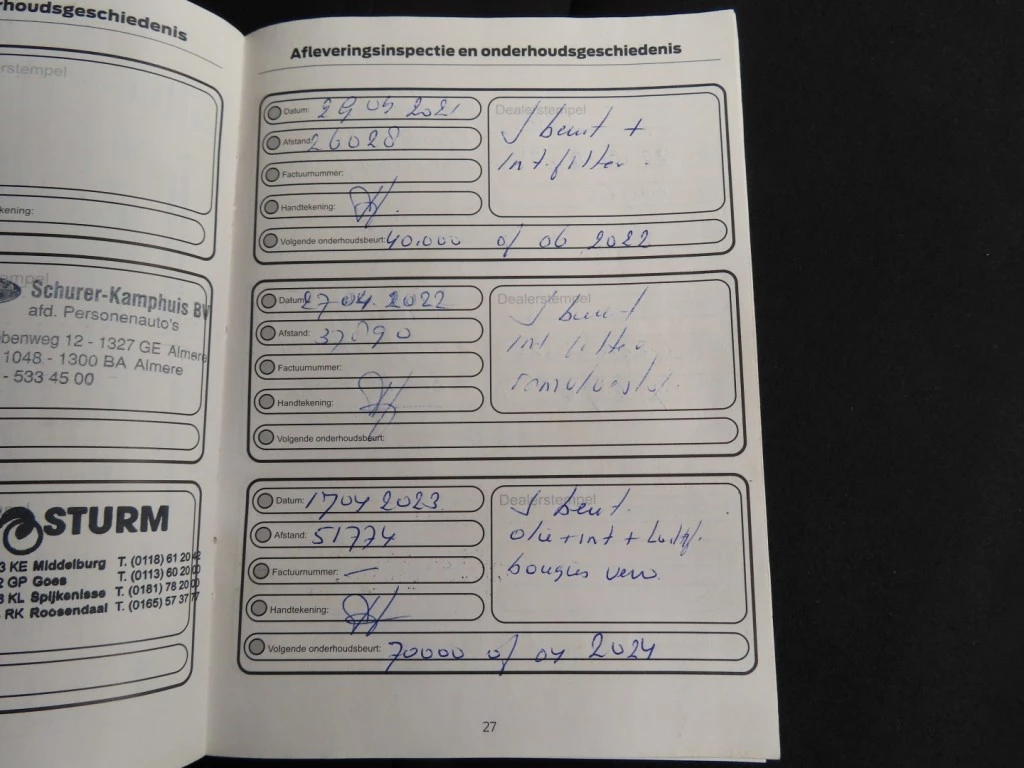 rhoudsgeschiedenis
erstempel
kening:
empel
Schurer-Kamphuis BV
afd. Personenauto's
benweg 12 - 1327 GE Almere
1048 - 1300 BA Almere
- 533 45 00
STURM
3 KE Middelburg T. (0118) 61 20 42
2 GP Goes T. (0113) 60 20 00
8 KL Spijkenisse T. (0181) 78 20 00
RK Roosendaal T. (0165) 57 37 77
Afleveringsinspectie en onderhoudsgeschiedenis
Datum: 29 04 2021
Afstand: 26028
Factuurnummer:
Handtekening:
Volgende onderhoudsbeurt: 40.000 of 06 2022
Dealerstempel
beurt +
int. filter.
Datum: 27 04. 2022
Afstand: 37890
Factuurnummer:
Handtekening:
Volgende onderhoudsbeurt:
Dealerstempel
beurt
int filter
Datum: 17 04 2023
Afstand: 51774
Factuurnummer: —
Handtekening:
Volgende onderhoudsbeurt: 70000 of 04 2024
Dealerstempel
beurt.
olie + int + luchtf.
bougies verv.
27